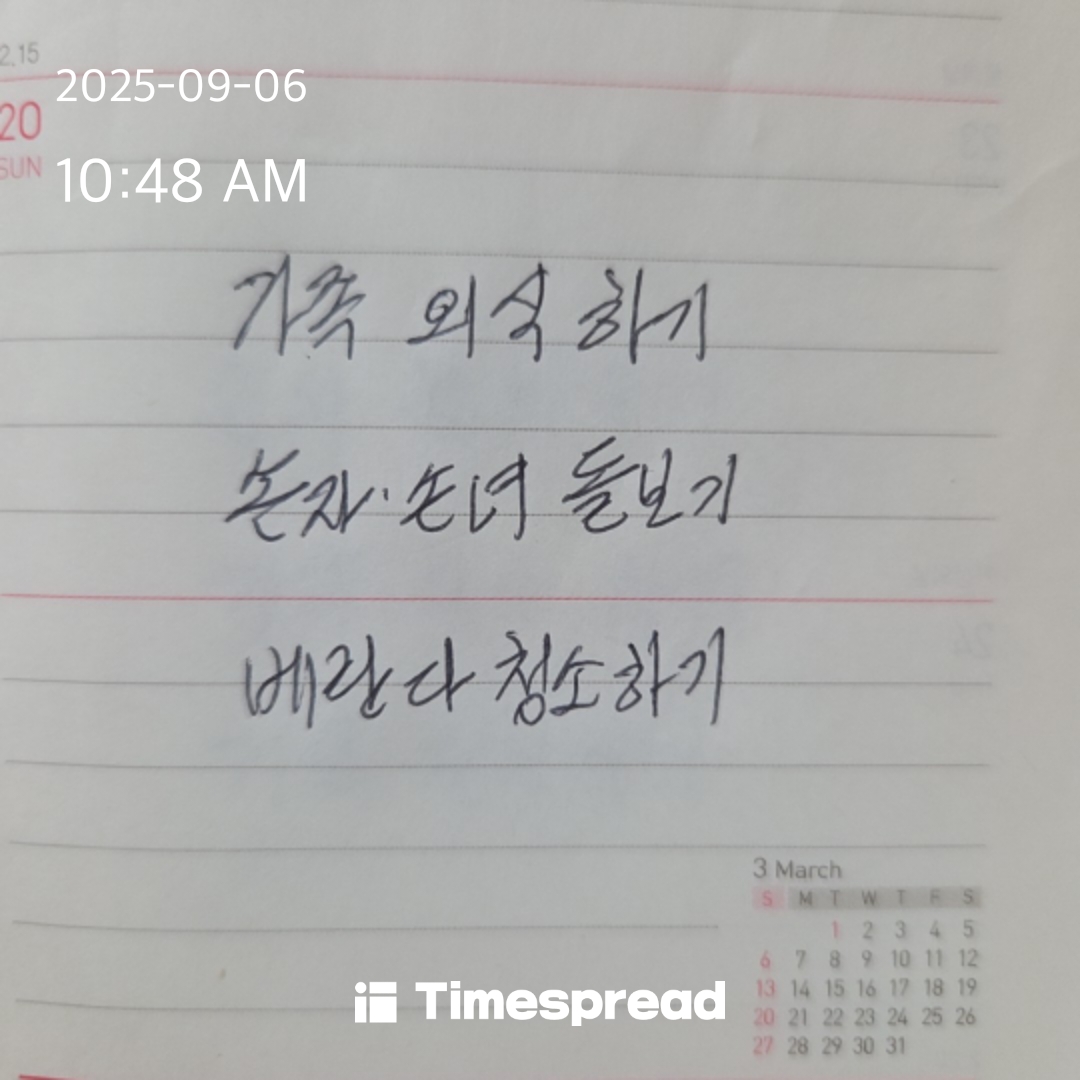 2.15
2025-09-06
20
SUN
10:48 AM
가족 외식하기
손자·손녀 돌보기
베란다 청소하기
3 March
S M T W T F S
1 2 3 4 5
6 7 8 9 10 11 12
13 14 15 16 17 18 19
20 21 22 23 24 25 26
27 28 29 30 31
Timespread